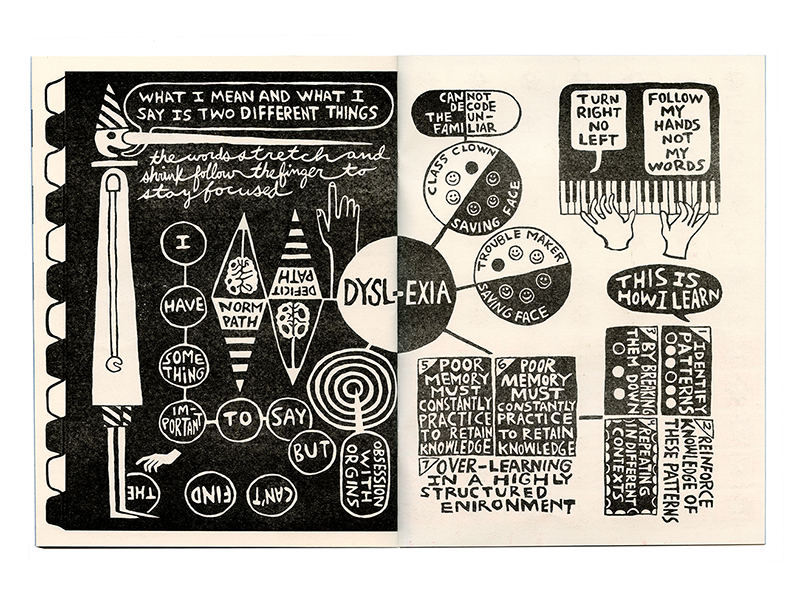 WHAT I MEAN AND WHAT I
SAY IS TWO DIFFERENT THINGS
the words stretch and
shrink follow the finger to
stay focused
I
HAVE
SOME
THING
IM-
PORTANT
TO
SAY
BUT
I
CAN'T
FIND
THE
NORM
PATH
DEFICIT
PATH
DYSL-EXIA
OBSESSION
WITH
ORGINS
CAN NOT
DE CODE
THE UN-
FAMI LIAR
CLASS CLOWN
SAVING FACE
TROUBLE MAKER
SAVING FACE
TURN
RIGHT
NO
LEFT
FOLLOW
MY
HANDS
NOT
MY
WORDS
THIS IS
HOW I LEARN
1 IDENTIFY
PATTERNS
2 REINFORCE
KNOWLEDGE OF
THESE PATTERNS
3 BY BREAKING
THEM DOWN
REPEATING
IN DIFFERENT
CONTEXTS
5 POOR
MEMORY
MUST
CONSTANTLY
PRACTICE
TO RETAIN
KNOWLEDGE
6 POOR
MEMORY
MUST
CONSTANTLY
PRACTICE
TO RETAIN
KNOWLEDGE
7 OVER-LEARNING
IN A HIGHLY
STRUCTURED
ENIRONMENT